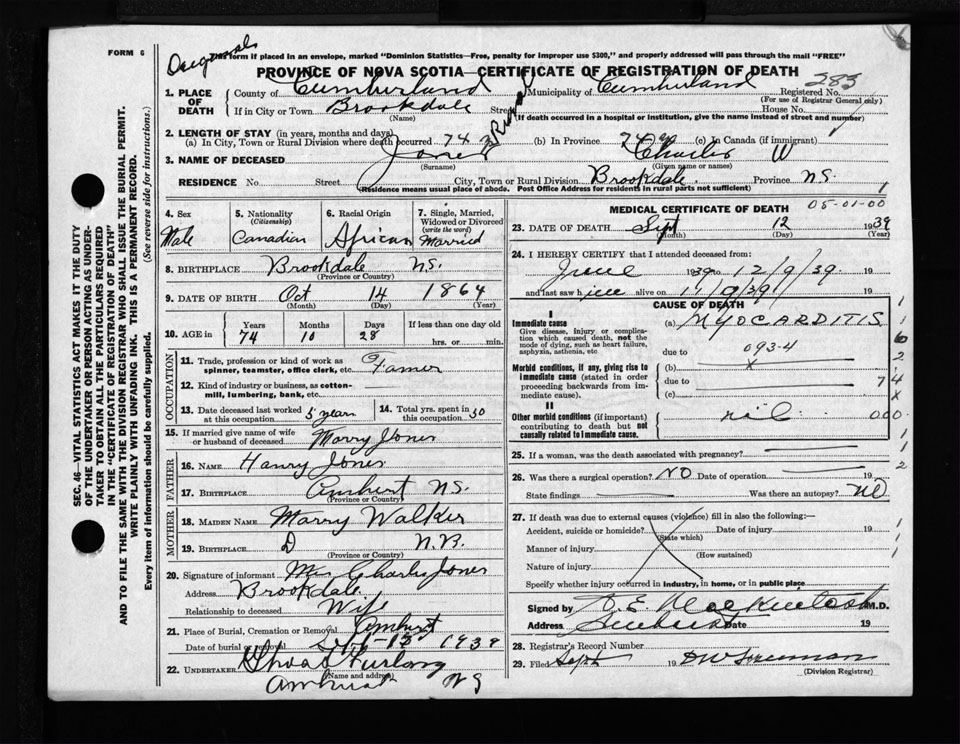 FORM 6
Original
This form if placed in an envelope, marked "Dominion Statistics—Free, penalty for improper use $300," and properly addressed will pass through the mail "FREE"
PROVINCE OF NOVA SCOTIA—CERTIFICATE OF REGISTRATION OF DEATH
283
1. PLACE OF DEATH
County of Cumberland Municipality of Cumberland Registered No.
(For use of Registrar General only)
If in City or Town Brookdale Street House No.
(Name) If death occurred in a hospital or institution, give the name instead of street and number
Rural
2. LENGTH OF STAY (in years, months and days)
(a) In City, Town or Rural Division where death occurred 74 (b) In Province 74 (c) In Canada (if immigrant)
3. NAME OF DECEASED Jones Charles W
(Surname) (Given name or names)
RESIDENCE No. Street City, Town or Rural Division Brookdale Province N.S.
(Residence means usual place of abode. Post Office Address for residents in rural parts not sufficient)
4. Sex Male
5. Nationality (Citizenship) Canadian
6. Racial Origin African
7. Single, Married, Widowed or Divorced (write the word) Married
8. BIRTHPLACE Brookdale N.S.
(Province or Country)
9. DATE OF BIRTH Oct 14 1864
(Month) (Day) (Year)
10. AGE in Years Months Days If less than one day
74 10 28 hrs. or min.
OCCUPATION
11. Trade, profession or kind of work as spinner, teamster, office clerk, etc. Farmer
12. Kind of industry or business, as cotton-mill, lumbering, bank, etc.
13. Date deceased last worked at this occupation 5 years
14. Total yrs. spent in this occupation 30
15. If married give name of wife or husband of deceased Marry Jones
FATHER
16. NAME Hanry Jones
17. BIRTHPLACE Amherst N.S.
MOTHER
18. MAIDEN NAME Marry Walker
19. BIRTHPLACE D N.B.
(Province or Country)
20. Signature of informant Mrs Charles Jones
Address Brookdale
Relationship to deceased Wife
21. Place of Burial, Cremation or Removal Amherst
Date of burial or removal Sept-15 1939
22. UNDERTAKER Furlong
(Name and address)
Amherst N S
MEDICAL CERTIFICATE OF DEATH
05-01-00
23. DATE OF DEATH Sept 12 1939
(Month) (Day) (Year)
24. I HEREBY CERTIFY that I attended deceased from:
June 1939 to 12/9/39 19
and last saw h alive on 11/9/39 19
CAUSE OF DEATH
I
Immediate cause
Give disease, injury or complication which caused death, not the mode of dying, such as heart failure, asphyxia, asthenia, etc.
(a) MYOCARDITIS
due to 093-4
Morbid conditions, if any, giving rise to immediate cause (stated in order proceeding backwards from immediate cause).
(b) x
due to 7
(c)
II
Other morbid conditions (if important) contributing to death but not causally related to immediate cause.
nil 000
25. If a woman, was the death associated with pregnancy?
26. Was there a surgical operation? NO Date of operation 19
State findings Was there an autopsy? NO
27. If death was due to external causes (violence) fill in also the following:—
Accident, suicide or homicide? Date of injury 19
(State which)
Manner of injury
(How sustained)
Nature of injury
Specify whether injury occurred in industry, in home, or in public place
Signed by D. E. MacKintosh M.D.
Address Amherst Date 19
28. Registrar's Record Number
29. Filed Sept 19
(Division Registrar)
SEC. 46—VITAL STATISTICS ACT MAKES IT THE DUTY
OF THE UNDERTAKER OR PERSON ACTING AS UNDER-
TAKER TO OBTAIN ALL THE PARTICULARS REQUIRED
IN THE "CERTIFICATE OF REGISTRATION OF DEATH"
AND TO FILE THE SAME WITH THE DIVISION REGISTRAR WHO SHALL ISSUE THE BURIAL PERMIT.
WRITE PLAINLY WITH UNFADING INK. THIS IS A PERMANENT RECORD.
Every item of information should be carefully supplied. (See reverse side for instructions.)